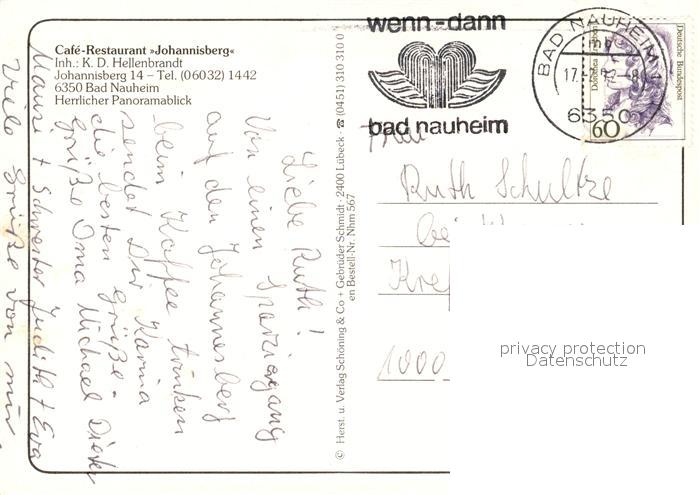 Café-Restaurant »Johannisberg«
Inh.: K. D. Hellenbrandt
Johannisberg 14 – Tel. (06032) 1442
6350 Bad Nauheim
Herrlicher Panoramablick
wenn-dann
bad nauheim
BAD NAUHEIM 1
6350
Deutsche Bundespost
60
Frau
Ruth Schultze
bei
Kre
1000
privacy protection
Datenschutz
© Herst. u. Verlag Schöning & Co + Gebrüder Schmidt · 2400 Lübeck · ☎ (0451) 310 310 0
en Bestell-Nr. Nhm 567
Liebe Ruth!
Von einen Spaziergang
auf den Johannesberg
beim Kaffee trinken
sendet Dir Karina
die besten Grüße.
Grüße Oma Michael Dieter
Mausi + Schwester Judith + Eva
Viele Grüße von mir